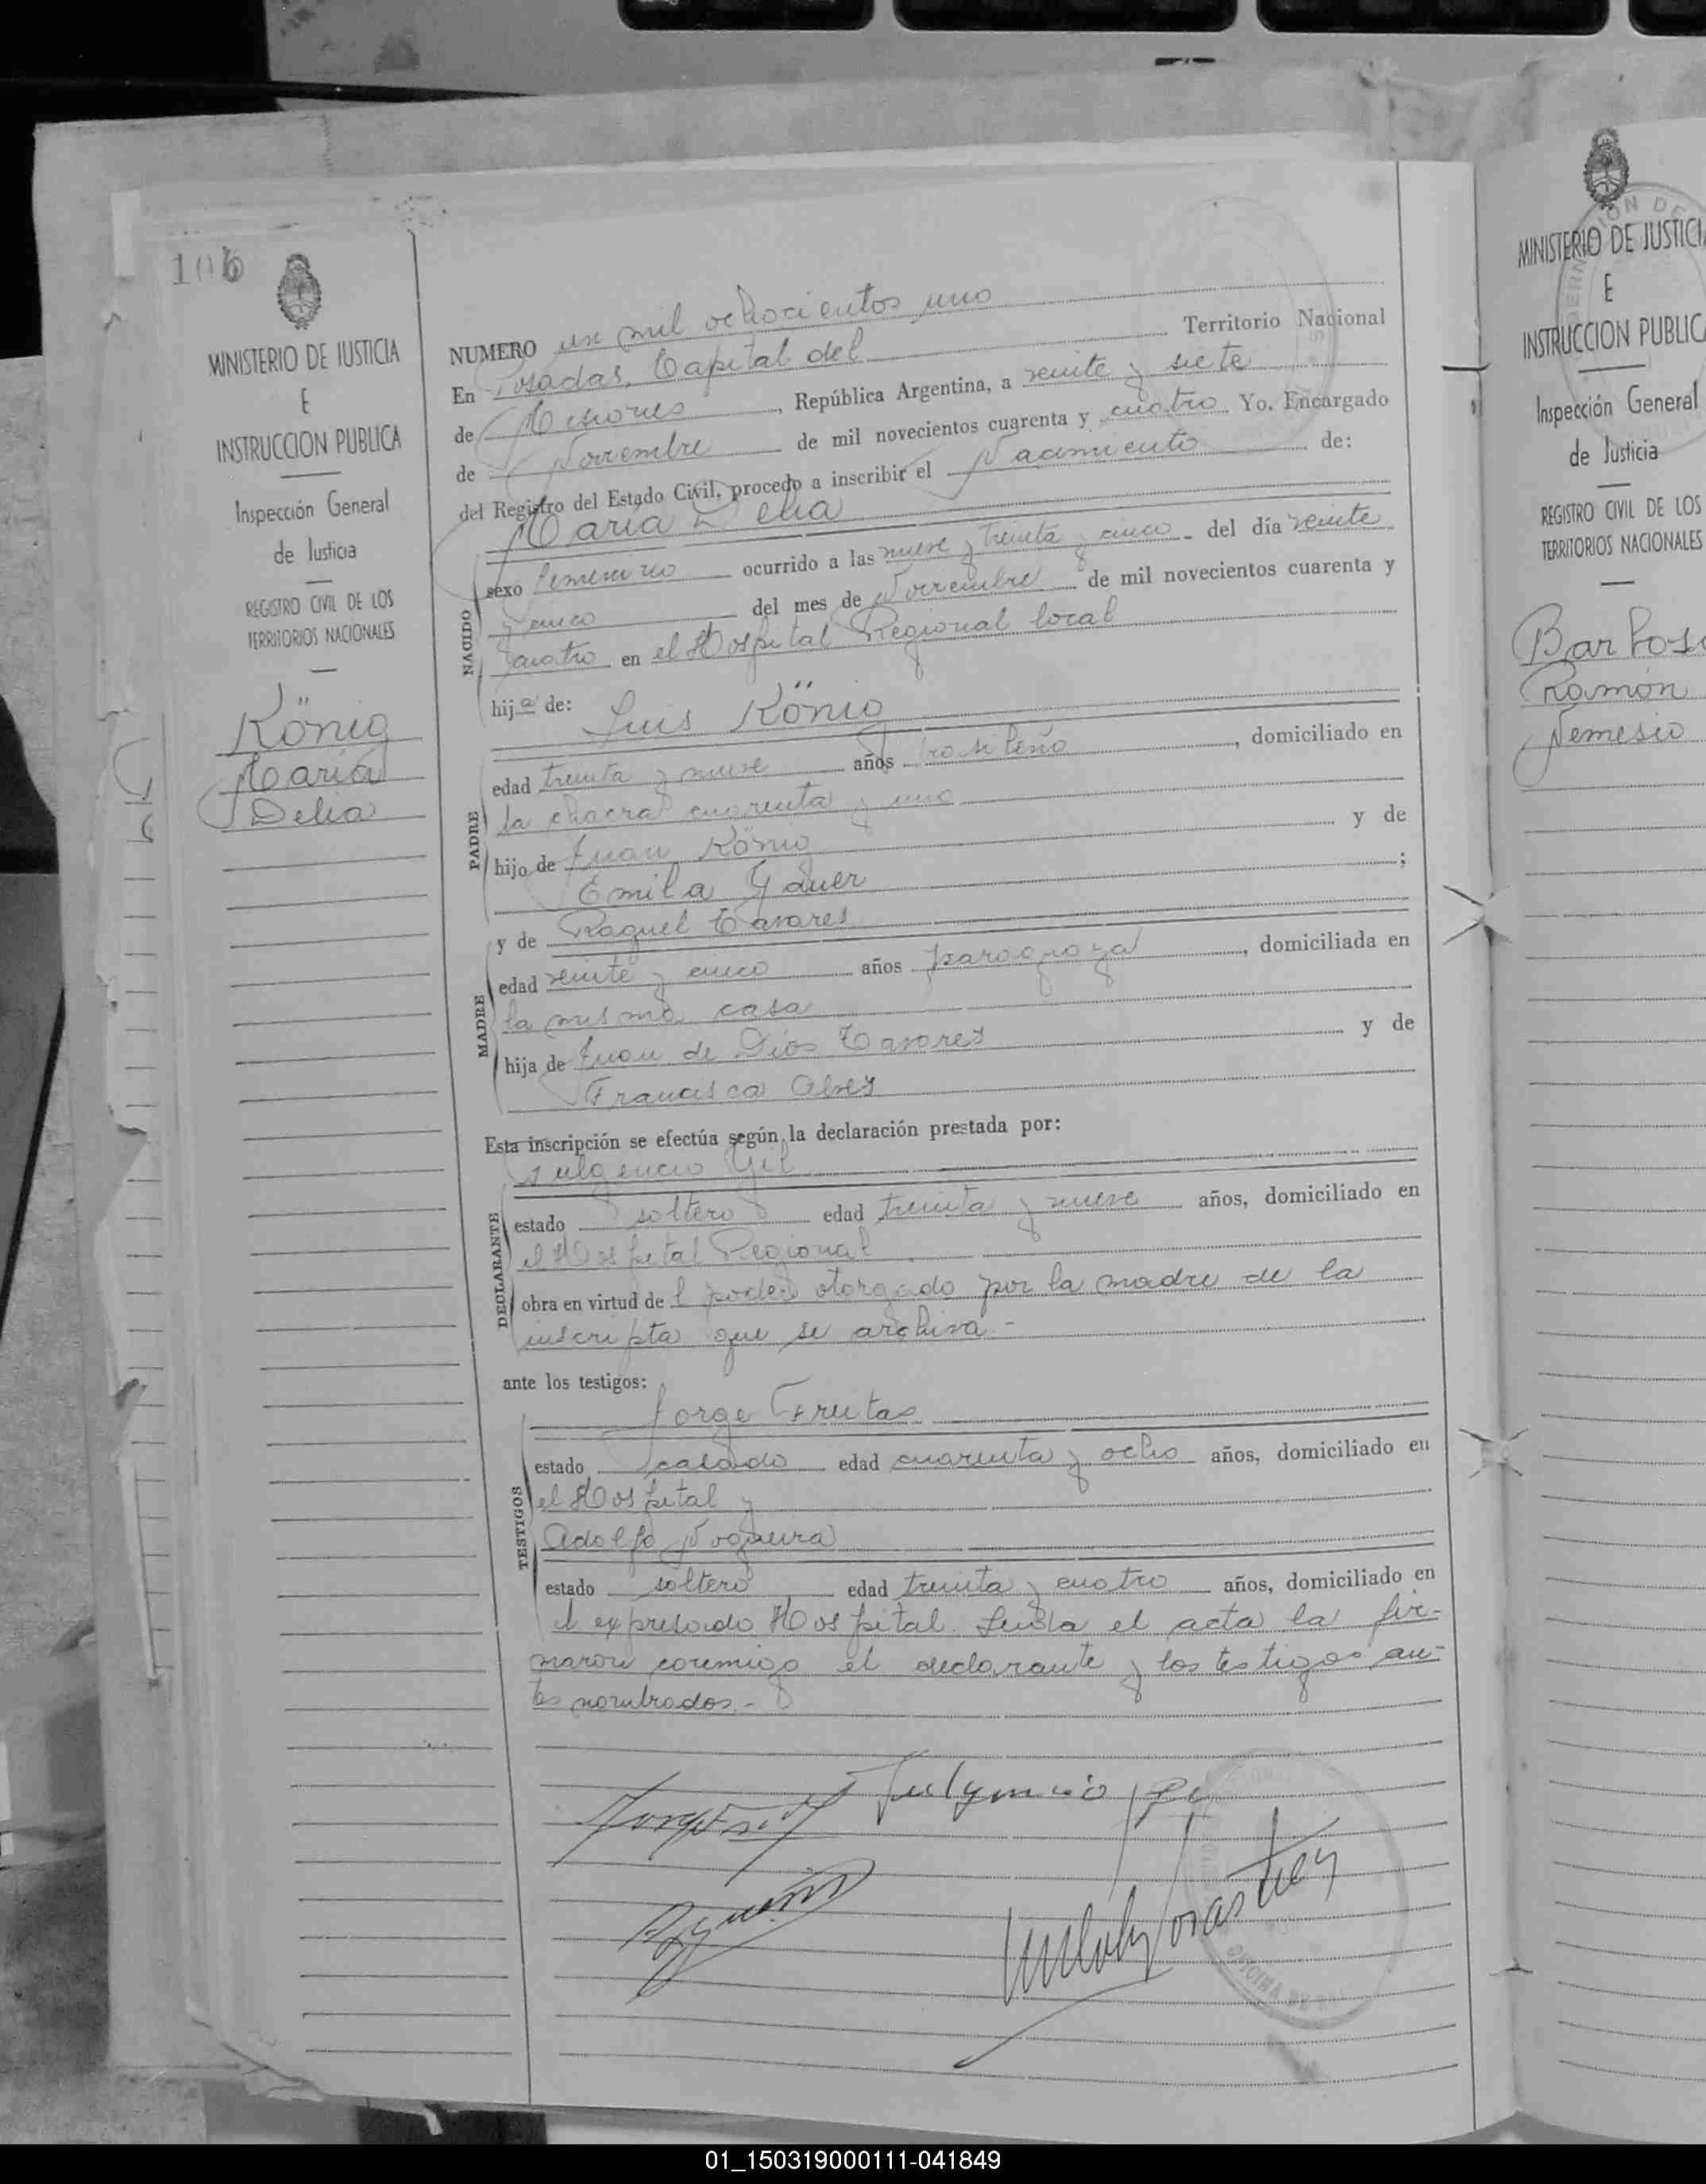 106
MINISTERIO DE JUSTICIA
E
INSTRUCCION PUBLICA
Inspección General
de Justicia
REGISTRO CIVIL DE LOS
TERRITORIOS NACIONALES
König
María
Delia
NUMERO un mil ochocientos uno
En Posadas, Capital del Territorio Nacional
de Misiones, República Argentina, a veinte y siete
de Noviembre de mil novecientos cuarenta y cuatro Yo, Encargado
del Registro del Estado Civil, procedo a inscribir el Nacimiento de:
María Delia
NACIDO
sexo femenino ocurrido a las nueve y treinta y cinco del día veinte
y cinco del mes de Noviembre de mil novecientos cuarenta y
cuatro en el Hospital Regional local
hija de: Luis König
PADRE
edad treinta y nueve años brasileño, domiciliado en
la chacra cuarenta y uno
hijo de Juan König y de
Emila Gauer;
y de Raquel Tavares
MADRE
edad veinte y cinco años paraguaya, domiciliada en
la misma casa
hija de Juan de Dios Tavares y de
Francisca Alves
Esta inscripción se efectúa según la declaración prestada por:
Fulgencio Gil
DECLARANTE
estado soltero edad treinta y nueve años, domiciliado en
el Hospital Regional
obra en virtud del poder otorgado por la madre de la
inscripta que se archiva.-
ante los testigos:
Jorge Frutas
TESTIGOS
estado casado edad cuarenta y ocho años, domiciliado en
el Hospital y
Adolfo Nogueira
estado soltero edad treinta y cuatro años, domiciliado en
el expresado Hospital. Leída el acta la fir-
maron conmigo el declarante y los testigos an-
tes nombrados.-
Fulgencio Gil
MINISTERIO DE JUSTICIA
E
INSTRUCCION PUBLICA
Inspección General
de Justicia
REGISTRO CIVIL DE LOS
TERRITORIOS NACIONALES
Barbosa
Ramón
Nemesio
01_150319000111-041849